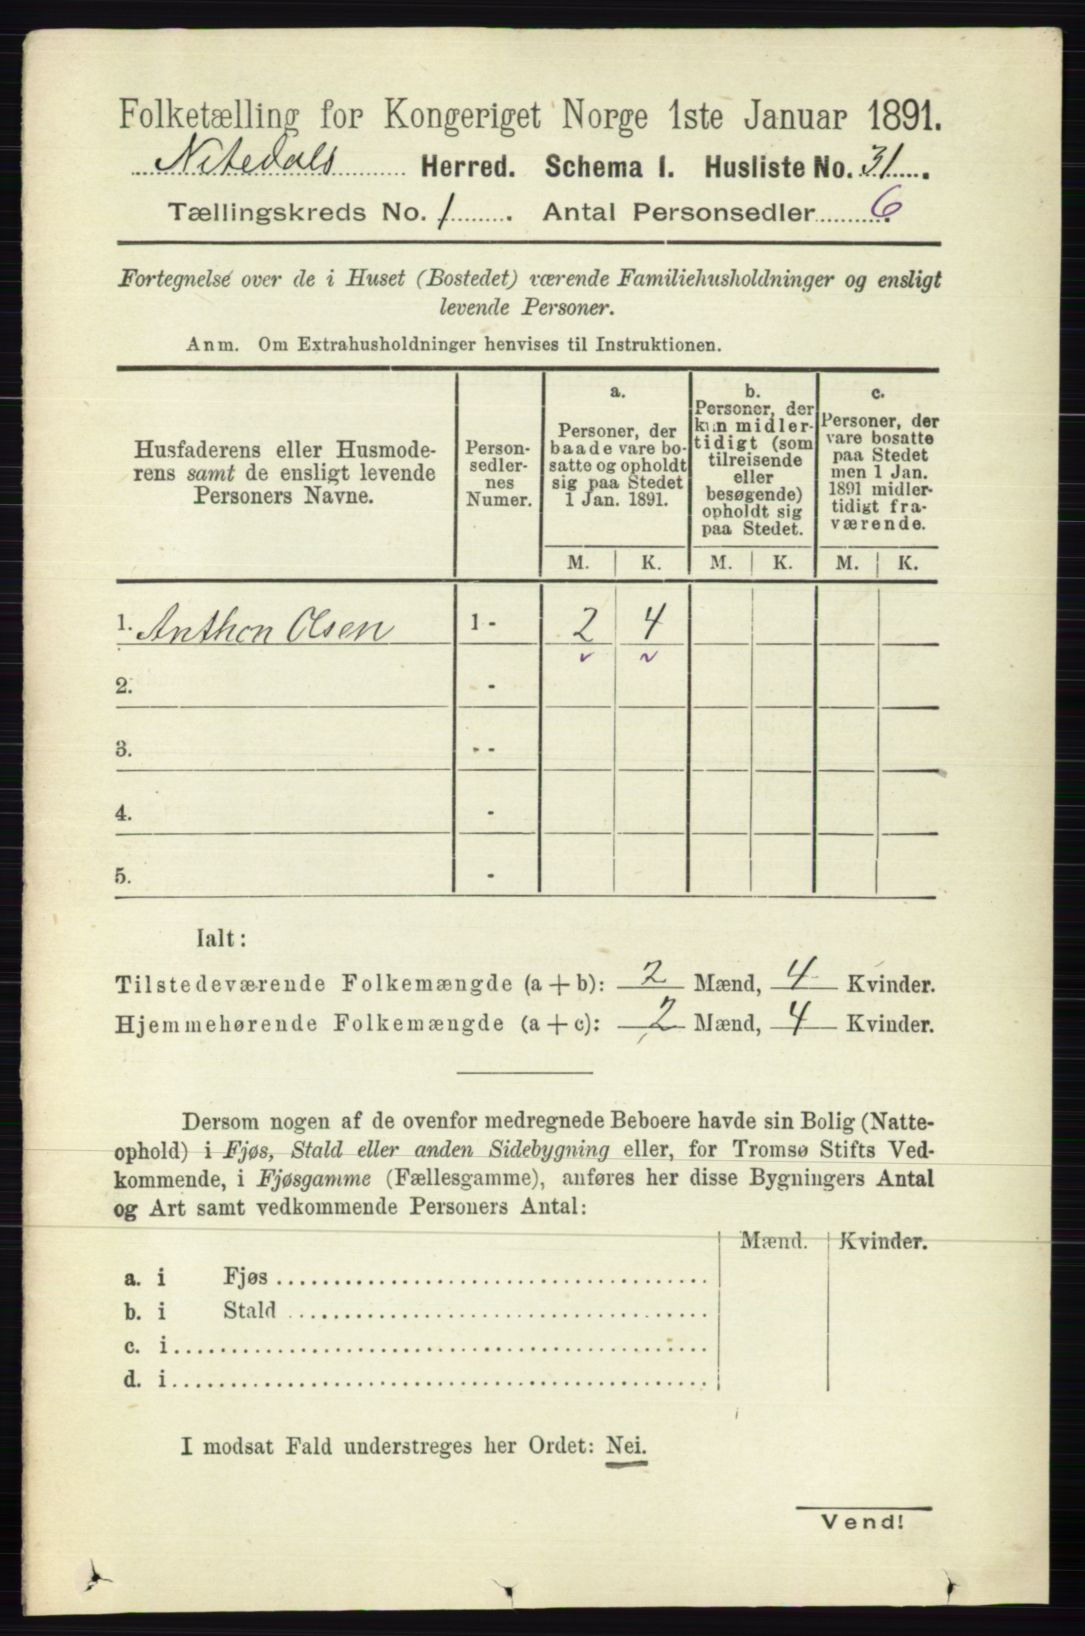 Folketælling for Kongeriget Norge 1ste Januar 1891.
Nitedals Herred. Schema I. Husliste No. 31.
Tællingskreds No. 1. Antal Personsedler 6
Fortegnelse over de i Huset (Bostedet) værende Familiehusholdninger og ensligt
levende Personer.
Anm. Om Extrahusholdninger henvises til Instruktionen.
Husfaderens eller Husmode-
rens samt de ensligt levende
Personers Navne.
Person-
sedler-
nes
Numer.
a.
Personer, der
baade vare bo-
satte og opholdt
sig paa Stedet
1 Jan. 1891.
b.
Personer, der
kun midler-
tidigt (som
tilreisende
eller
besøgende)
opholdt sig
paa Stedet.
c.
Personer, der
vare bosatte
paa Stedet
men 1 Jan.
1891 midler-
tidigt fra-
værende.
M. K. M. K. M. K.
1. Anthon Olsen 1 - 2 4
2. -
3. -
4. -
5. -
Ialt:
Tilstedeværende Folkemængde (a + b): 2 Mænd, 4 Kvinder.
Hjemmehørende Folkemængde (a + c): 2 Mænd, 4 Kvinder.
Dersom nogen af de ovenfor medregnede Beboere havde sin Bolig (Natte-
ophold) i Fjøs, Stald eller anden Sidebygning eller, for Tromsø Stifts Ved-
kommende, i Fjøsgamme (Fællesgamme), anføres her disse Bygningers Antal
og Art samt vedkommende Personers Antal:
Mænd. Kvinder.
a. i Fjøs
b. i Stald
c. i
d. i
I modsat Fald understreges her Ordet: Nei.
Vend!